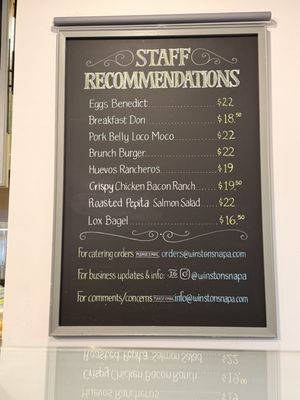 STAFF
RECOMMENDATIONS
Eggs Benedict $22
Breakfast Don $18.50
Pork Belly Loco Moco $22
Brunch Burger $22
Huevos Rancheros $19
Crispy Chicken Bacon Ranch $19.50
Roasted Pepita Salmon Salad $22
Lox Bagel $16.50
For catering orders PLEASE EMAIL orders@winstonsnapa.com
For business updates & info: @winstonsnapa
For comments/concerns PLEASE EMAIL info@winstonsnapa.com